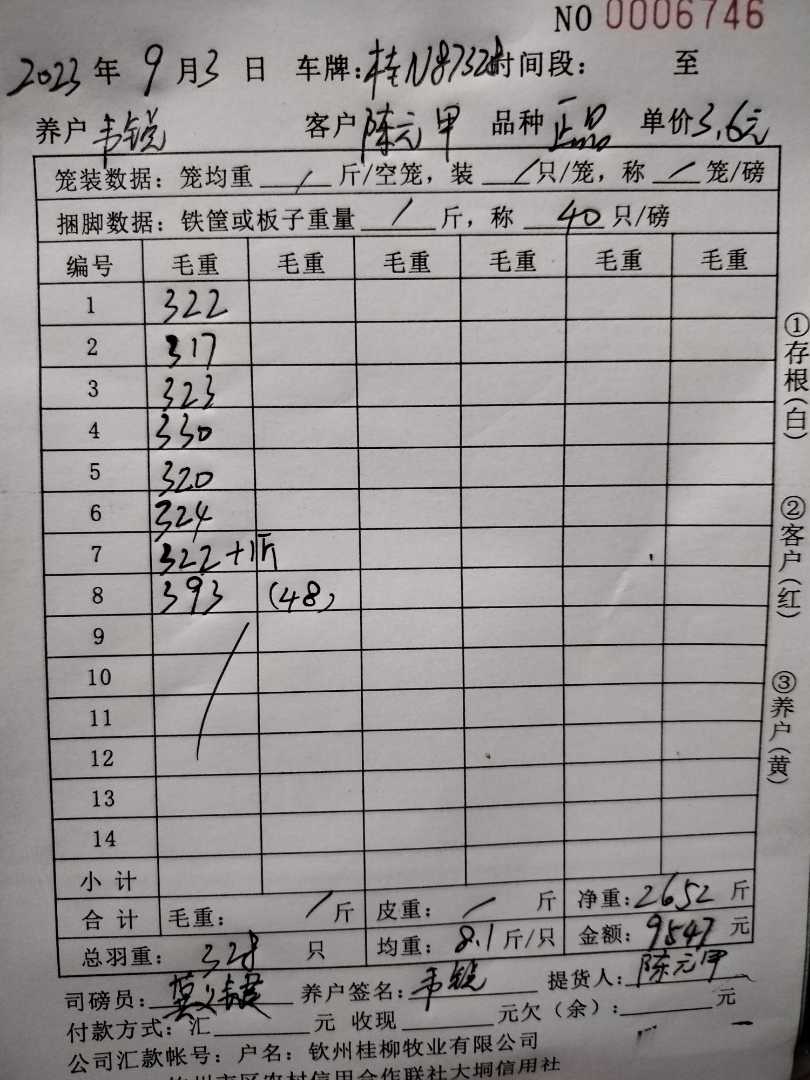 NO 0006746
2023年9月3日 车牌:桂N87328时间段: 至
养户 韦锐 客户 陈元甲 品种 正品 单价3.6元
笼装数据:笼均重 / 斤/空笼,装 / 只/笼,称 / 笼/磅
捆脚数据:铁筐或板子重量 / 斤,称 40 只/磅
编号 毛重 毛重 毛重 毛重 毛重 毛重
1 322
2 317
3 323
4 330
5 320
6 324
7 322+1斤
8 393 (48)
9
10
11
12
13
14
小计
合计 毛重: / 斤 皮重: / 斤 净重:2652斤
总羽重: 328 只 均重:8.1斤/只 金额:9547元
司磅员: 养户签名:韦锐 提货人:陈元甲
付款方式:汇 元 收现 元欠(余): 元
公司汇款帐号:户名:钦州桂柳牧业有限公司
市区农村信用合作联社大垌信用社
①存根(白)
②客户(红)
③养户(黄)